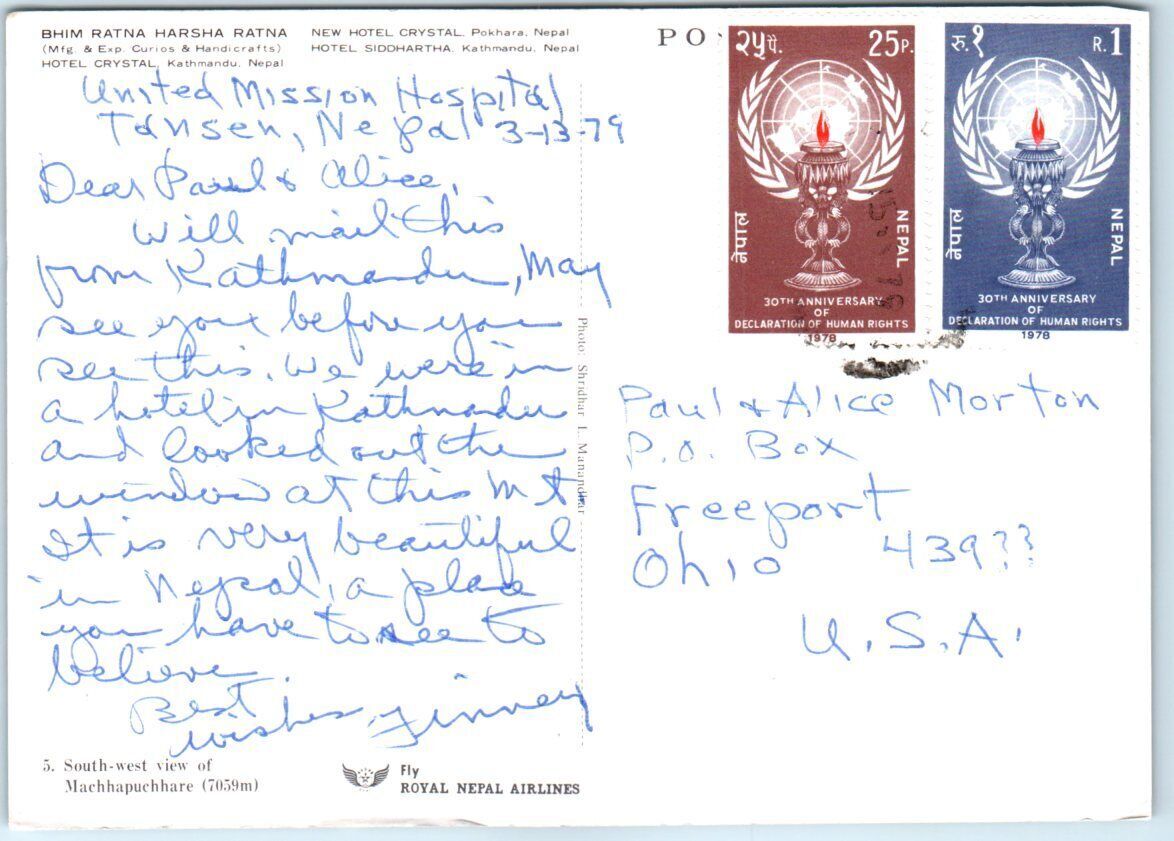 BHIM RATNA HARSHA RATNA
(Mfg. & Exp. Curios & Handicrafts)
HOTEL CRYSTAL, Kathmandu, Nepal
NEW HOTEL CRYSTAL, Pokhara, Nepal
HOTEL SIDDHARTHA, Kathmandu, Nepal
United Mission Hospital
Tansen, Nepal 3-13-79
Dear Paul & Alice,
Will mail this
from Kathmandu, May
see you before you
see this. We were in
a hotel in Kathmadu
and looked out the
window at this Mt.
It is very beautiful
in Nepal, a place
you have to see to
believe.
Best
wishes,
5. South-west view of
Machhapuchhare (7059m)
Fly
ROYAL NEPAL AIRLINES
Photo: Shridhar L. Manandhar
PO
२५पै. 25P.
नेपाल NEPAL
30TH ANNIVERSARY
OF
DECLARATION OF HUMAN RIGHTS
1978
रु.१ R.1
नेपाल NEPAL
30TH ANNIVERSARY
OF
DECLARATION OF HUMAN RIGHTS
1978
Paul & Alice Morton
P.O. Box
Freeport
Ohio 439??
U.S.A.